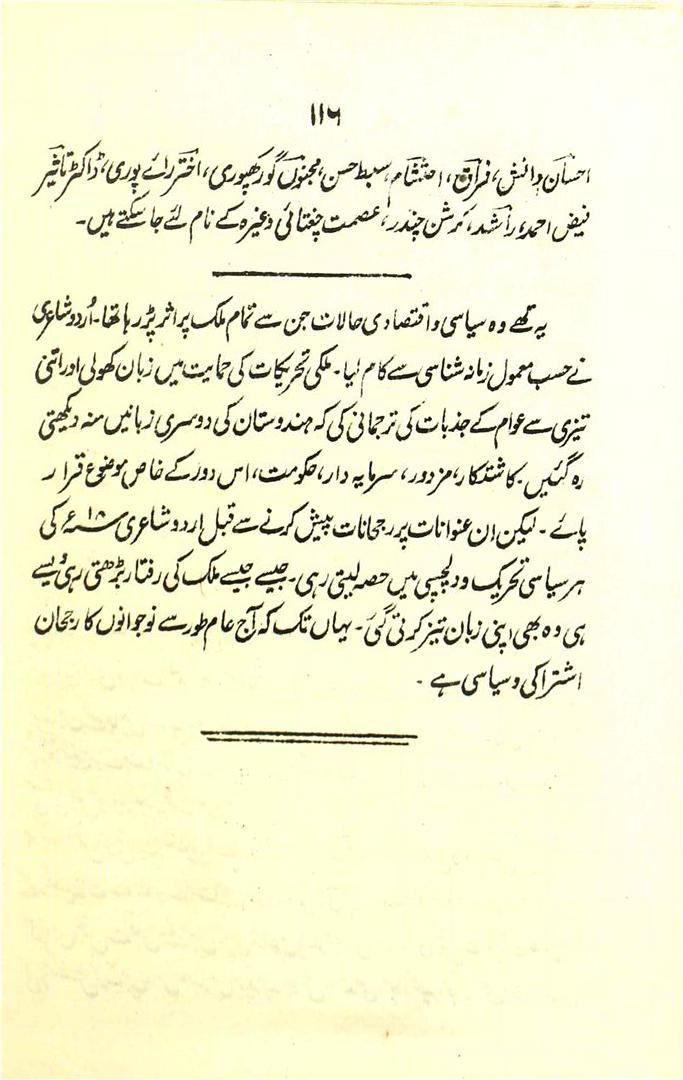 ۱۱۶
احسان دانش، فراق، احتشام، سبط حسن، مجنوں گورکھپوری، اختر رائے پوری، ڈاکٹر تاثیر
فیض احمد، راشد، کرشن چندر، عصمت چغتائی وغیرہ کے نام لئے جا سکتے ہیں۔
یہ تھے وہ سیاسی و اقتصادی حالات جن سے تمام ملک پر اثر پڑ رہا تھا۔ اُردو شاعری
نے حسب معمول زمانہ شناسی سے کام لیا۔ ملکی تحریکات کی حمایت میں زبان کھولی اور اتنی
تیزی سے عوام کے جذبات کی ترجمانی کی کہ ہندوستان کی دوسری زبانیں منہ دیکھتی
رہ گئیں۔ کاشتکار، مزدور، سرمایہ دار، حکومت، اس دور کے خاص موضوع قرار
پائے۔ لیکن اِن عنوانات پر رجحانات پیش کرنے سے قبل اردو شاعری کی
ہر سیاسی تحریک و دلچسپی میں حصہ لیتی رہی۔ جیسے جیسے ملک کی رفتار بڑھتی رہی وُیسے
ہی وہ بھی اپنی زبان تیز کرتی گئی۔ یہاں تک کہ آج عام طور سے نوجوانوں کا رجحان
اشتراکی و سیاسی ہے۔